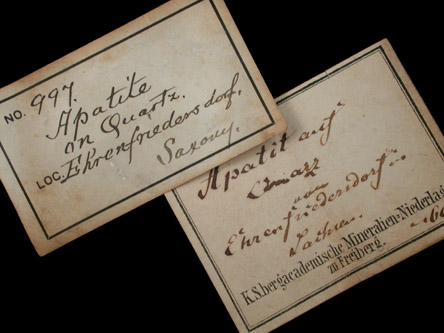 NO. 997.
Apatite
in Quartz.
LOC. Ehrenfriedersdorf,
Saxony.
Apatit auf
Quarz
von
Ehrenfriedersdorf
Sachsen.
K.S. bergacademische Mineralien-Niederla
zu Freiberg.